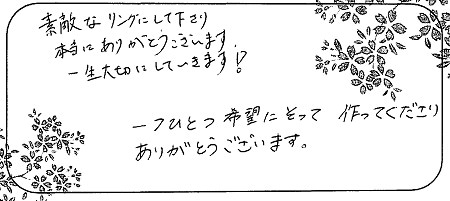 素敵なリングにして下さり
本当にありがとうございます
一生大切にしていきます!
一つひとつ希望にそって 作ってくださり
ありがとうございます。